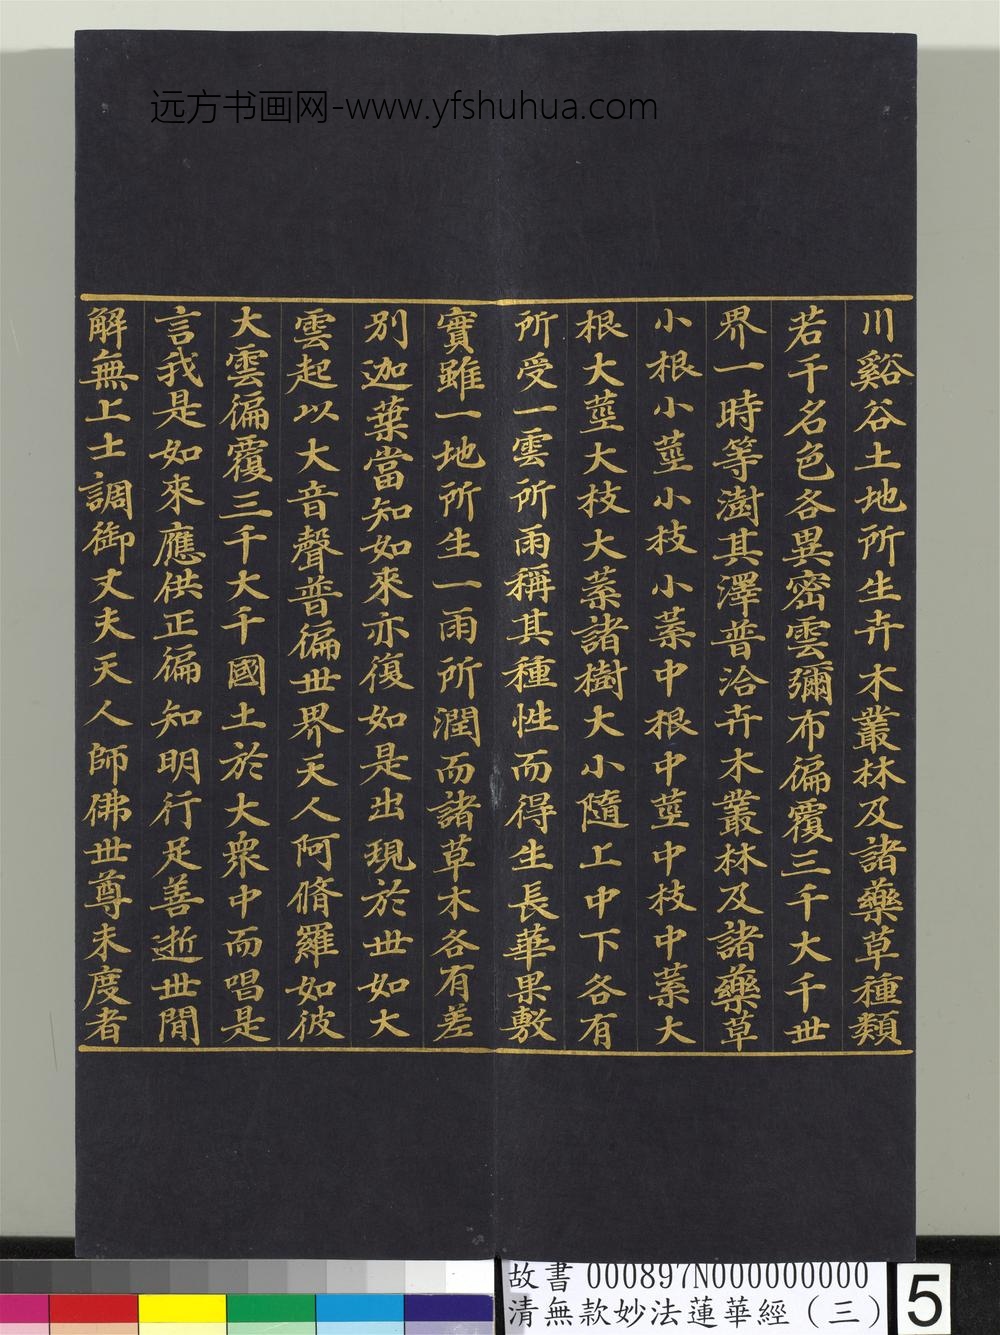 远方书画网-www.yfshuhua.com
川谿谷土地所生卉木叢林及諸藥草種類
若干名色各異密雲彌布徧覆三千大千世
界一時等澍其澤普洽卉木叢林及諸藥草
小根小莖小枝小葉中根中莖中枝中葉大
根大莖大枝大葉諸樹大小隨上中下各有
所受一雲所雨稱其種性而得生長華果敷
實雖一地所生一雨所潤而諸草木各有差
別迦葉當知如來亦復如是出現於世如大
雲起以大音聲普徧世界天人阿脩羅如彼
大雲徧覆三千大千國土於大衆中而唱是
言我是如來應供正徧知明行足善逝世間
解無上士調御丈夫天人師佛世尊未度者
故書 000897N000000000
清無款妙法蓮華經（三）
5